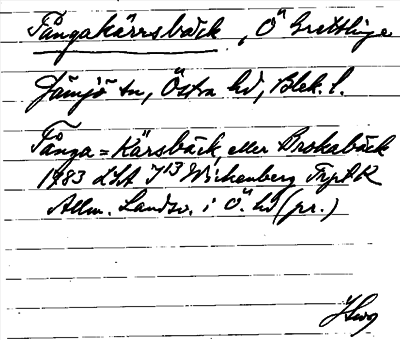 Tångakärrsbäck, Ö Grettlinge
Jämjö sn, Östra hd, Blek. l.
Tånga = Kärsbäck, eller Broksbäck
1783 LSA J13 Wichenberg
Allm. Landsv. i Ö. hd (pr.)